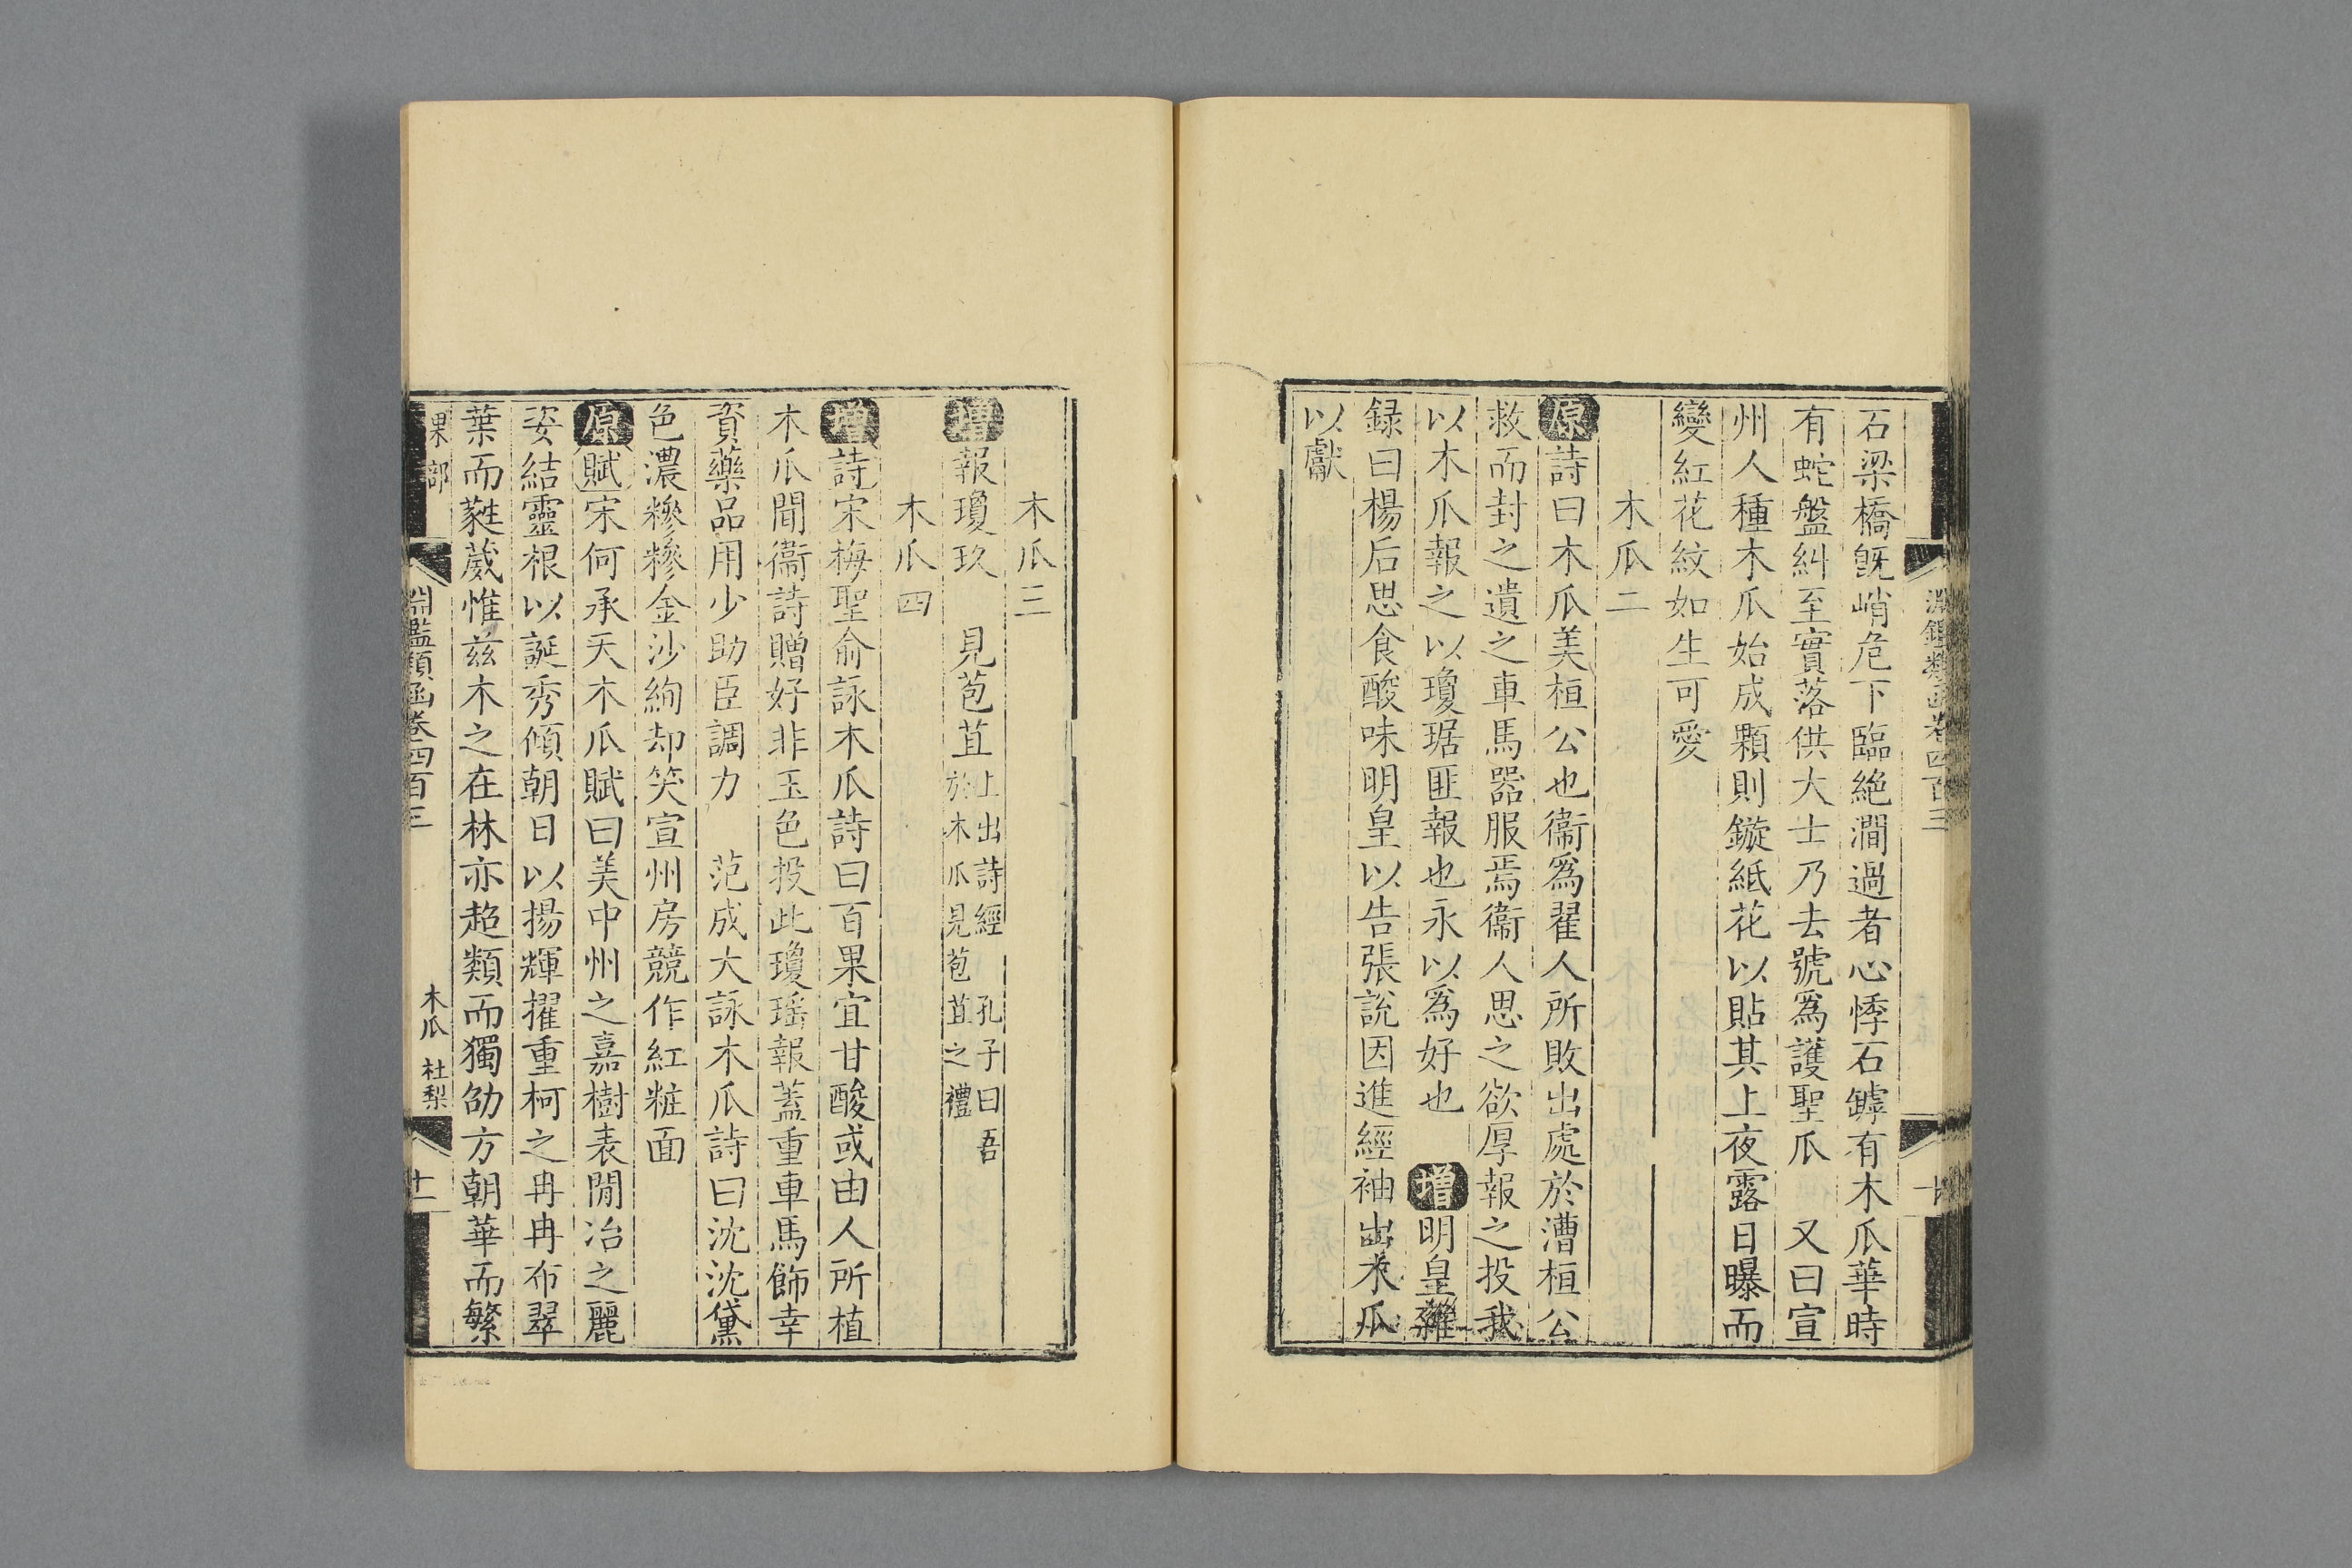 石梁橋旣峭危下臨絶澗過者心悸石罅有木瓜華時
有蛇盤糾至實落供大士乃去號爲護聖瓜　又曰宣
州人種木瓜始成顆則鏇紙花以貼其上夜露日曝而
變紅花紋如生可愛
木瓜二
原詩曰木瓜美桓公也衞爲翟人所敗出處於漕桓公
救而封之遺之車馬器服焉衞人思之欲厚報之投我
以木瓜報之以瓊琚匪報也永以爲好也　增明皇雜
録曰楊后思食酸味明皇以告張說因進經袖出木瓜
以獻
淵鑑類函卷四百三
十
木瓜三
增報瓊玖　見苞苴上出詩經　孔子曰吾
於木瓜見苞苴之禮
木瓜四
增詩宋梅聖俞詠木瓜詩曰百果宜甘酸或由人所植
木瓜聞衞詩贈好非玉色投此瓊瑤報蓋重車馬飾幸
資藥品用少助臣調力　范成大詠木瓜詩曰沈沈黛
色濃糝糝金沙絢却笑宣州房競作紅粧面
原賦宋何承天木瓜賦曰美中州之嘉樹表閒冶之麗
姿結靈根以誕秀傾朝日以揚輝擢重柯之冉冉布翠
葉而蕤葳惟茲木之在林亦超類而獨劭方朝華而繁
果部
淵鑑類函卷四百三
木瓜　杜梨
十一